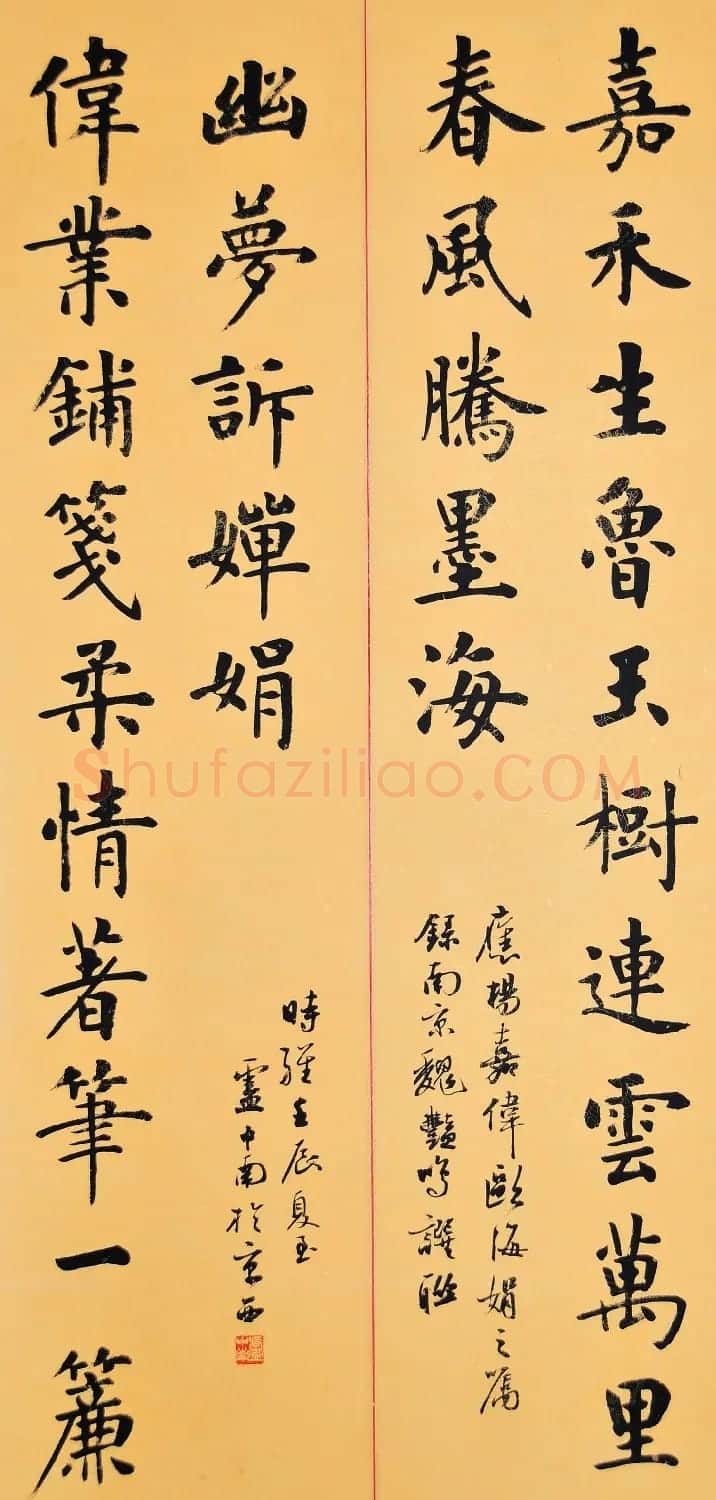 嘉禾生魯玉樹連雲萬里
春風騰墨海
應楊嘉偉歐海娟之囑
錄南京魏豔鳴譔聯
偉業鋪箋柔情著筆一簾
幽夢訴嬋娟
時維壬辰夏至
盧中南於京西
Shufaziliao.COM